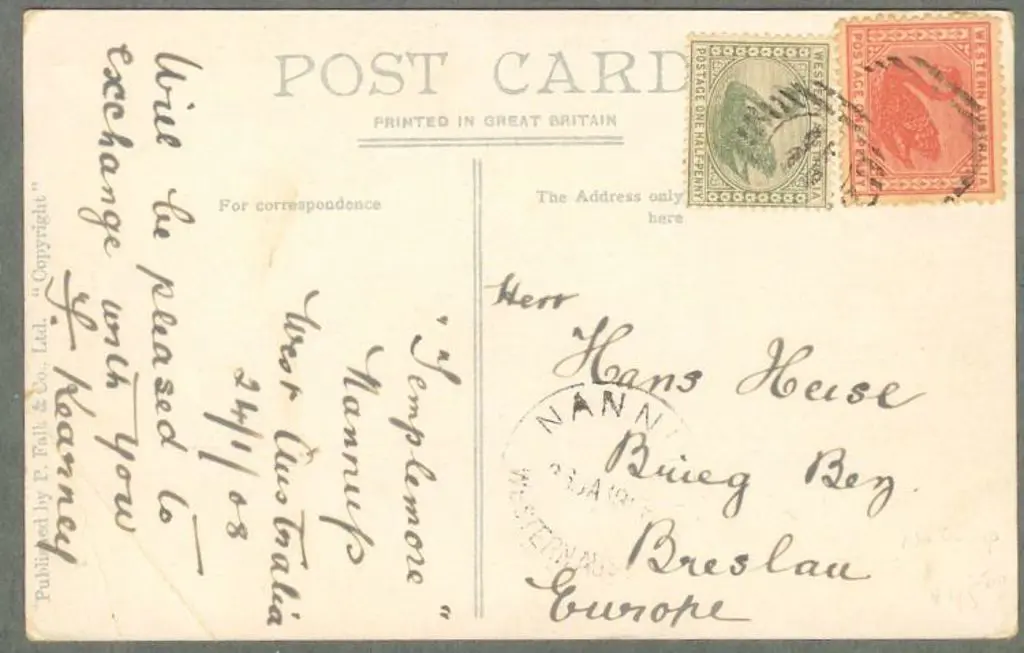 POST CARD
PRINTED IN GREAT BRITAIN
For correspondence
The Address only
here
WESTERN AUSTRALIA
POSTAGE ONE HALF-PENNY
WESTERN AUSTRALIA
POSTAGE ONE PENNY
"Templemore"
Nannup
West Australia
24/1/08
Will be pleased to
exchange with you
Kearney
Published by P. Falk & Co., Ltd. "Copyright"
Herr
Hans Heise
Brieg Bez.
Breslau
Europe
NANN
WESTERN AUS